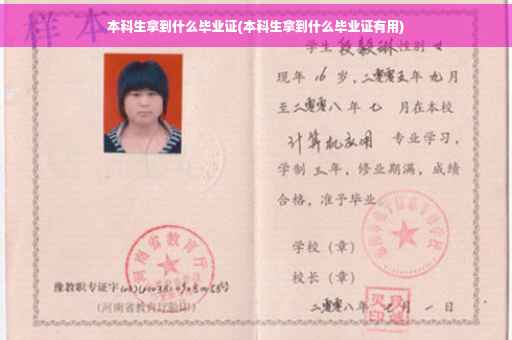 本科生拿到什么毕业证(本科生拿到什么毕业证有用)
样本
学生 段毅琳 性别 女
现年 16 岁,二零零五年 九月
至二零零八年 七 月在本校
计算机应用 专业学习,
学制 三 年,修业期满,成绩
合格,准予毕业
学校(章)
校长(章)
二零零八年 七 月 一 日
河南省教育厅
豫教职专证字
(河南省教育厅验印)